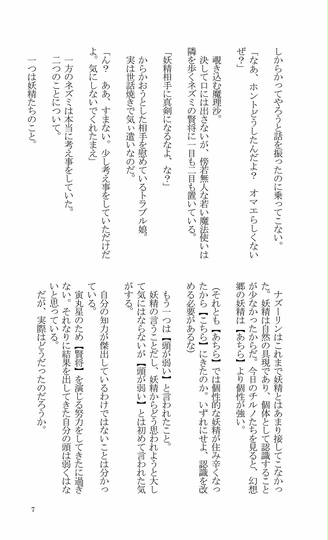 しからかってやろうと話を振ったのに乗ってこない。
「なあ、ホントどうしたんだよ？　オマエらしくない
ぜ？」
覗き込む魔理沙。
決して口には出さないが、傍若無人な若い魔法使いは
隣を歩くネズミの賢将に一目も二目も置いている。
「妖精相手に真剣になるなよ、な？」
からかおうとした相手を慰めているトラブル娘。
実は世話焼きで気ぃ遣いなのだ。
「ん？　ああ、すまない。少し考え事をしていただけだ
よ、気にしないでくれたまえ」
一方のネズミは本当に考え事をしていた。
二つのことについて。
一つは妖精たちのこと。
ナズーリンはこれまで妖精とはあまり接してこなかっ
た。妖精は自然の具現であり、個体として認識すること
が少なかったからだ。今日のチルノたちを見ると、幻想
郷の妖精は【あちら】より個性が強い。
（それとも【あちら】では個性的な妖精が住み辛くなっ
たから【こちら】にきたのか。いずれにせよ、認識を改
める必要があるな）
もう一つは【頭が弱い】と言われたこと。
妖精の言うことだし、妖精からどう思われようと大し
て気にはならないが【頭が弱い】とは初めて言われた気
がする。
自分の知力が傑出しているわけではないことは分かっ
ている。
寅丸星のため【賢将】を演じる努力をしてきたに過ぎ
ない。それなりに結果を出してきた自分の頭は弱くはな
いと思っている。
だが、実際はどうだったのだろうか。
7